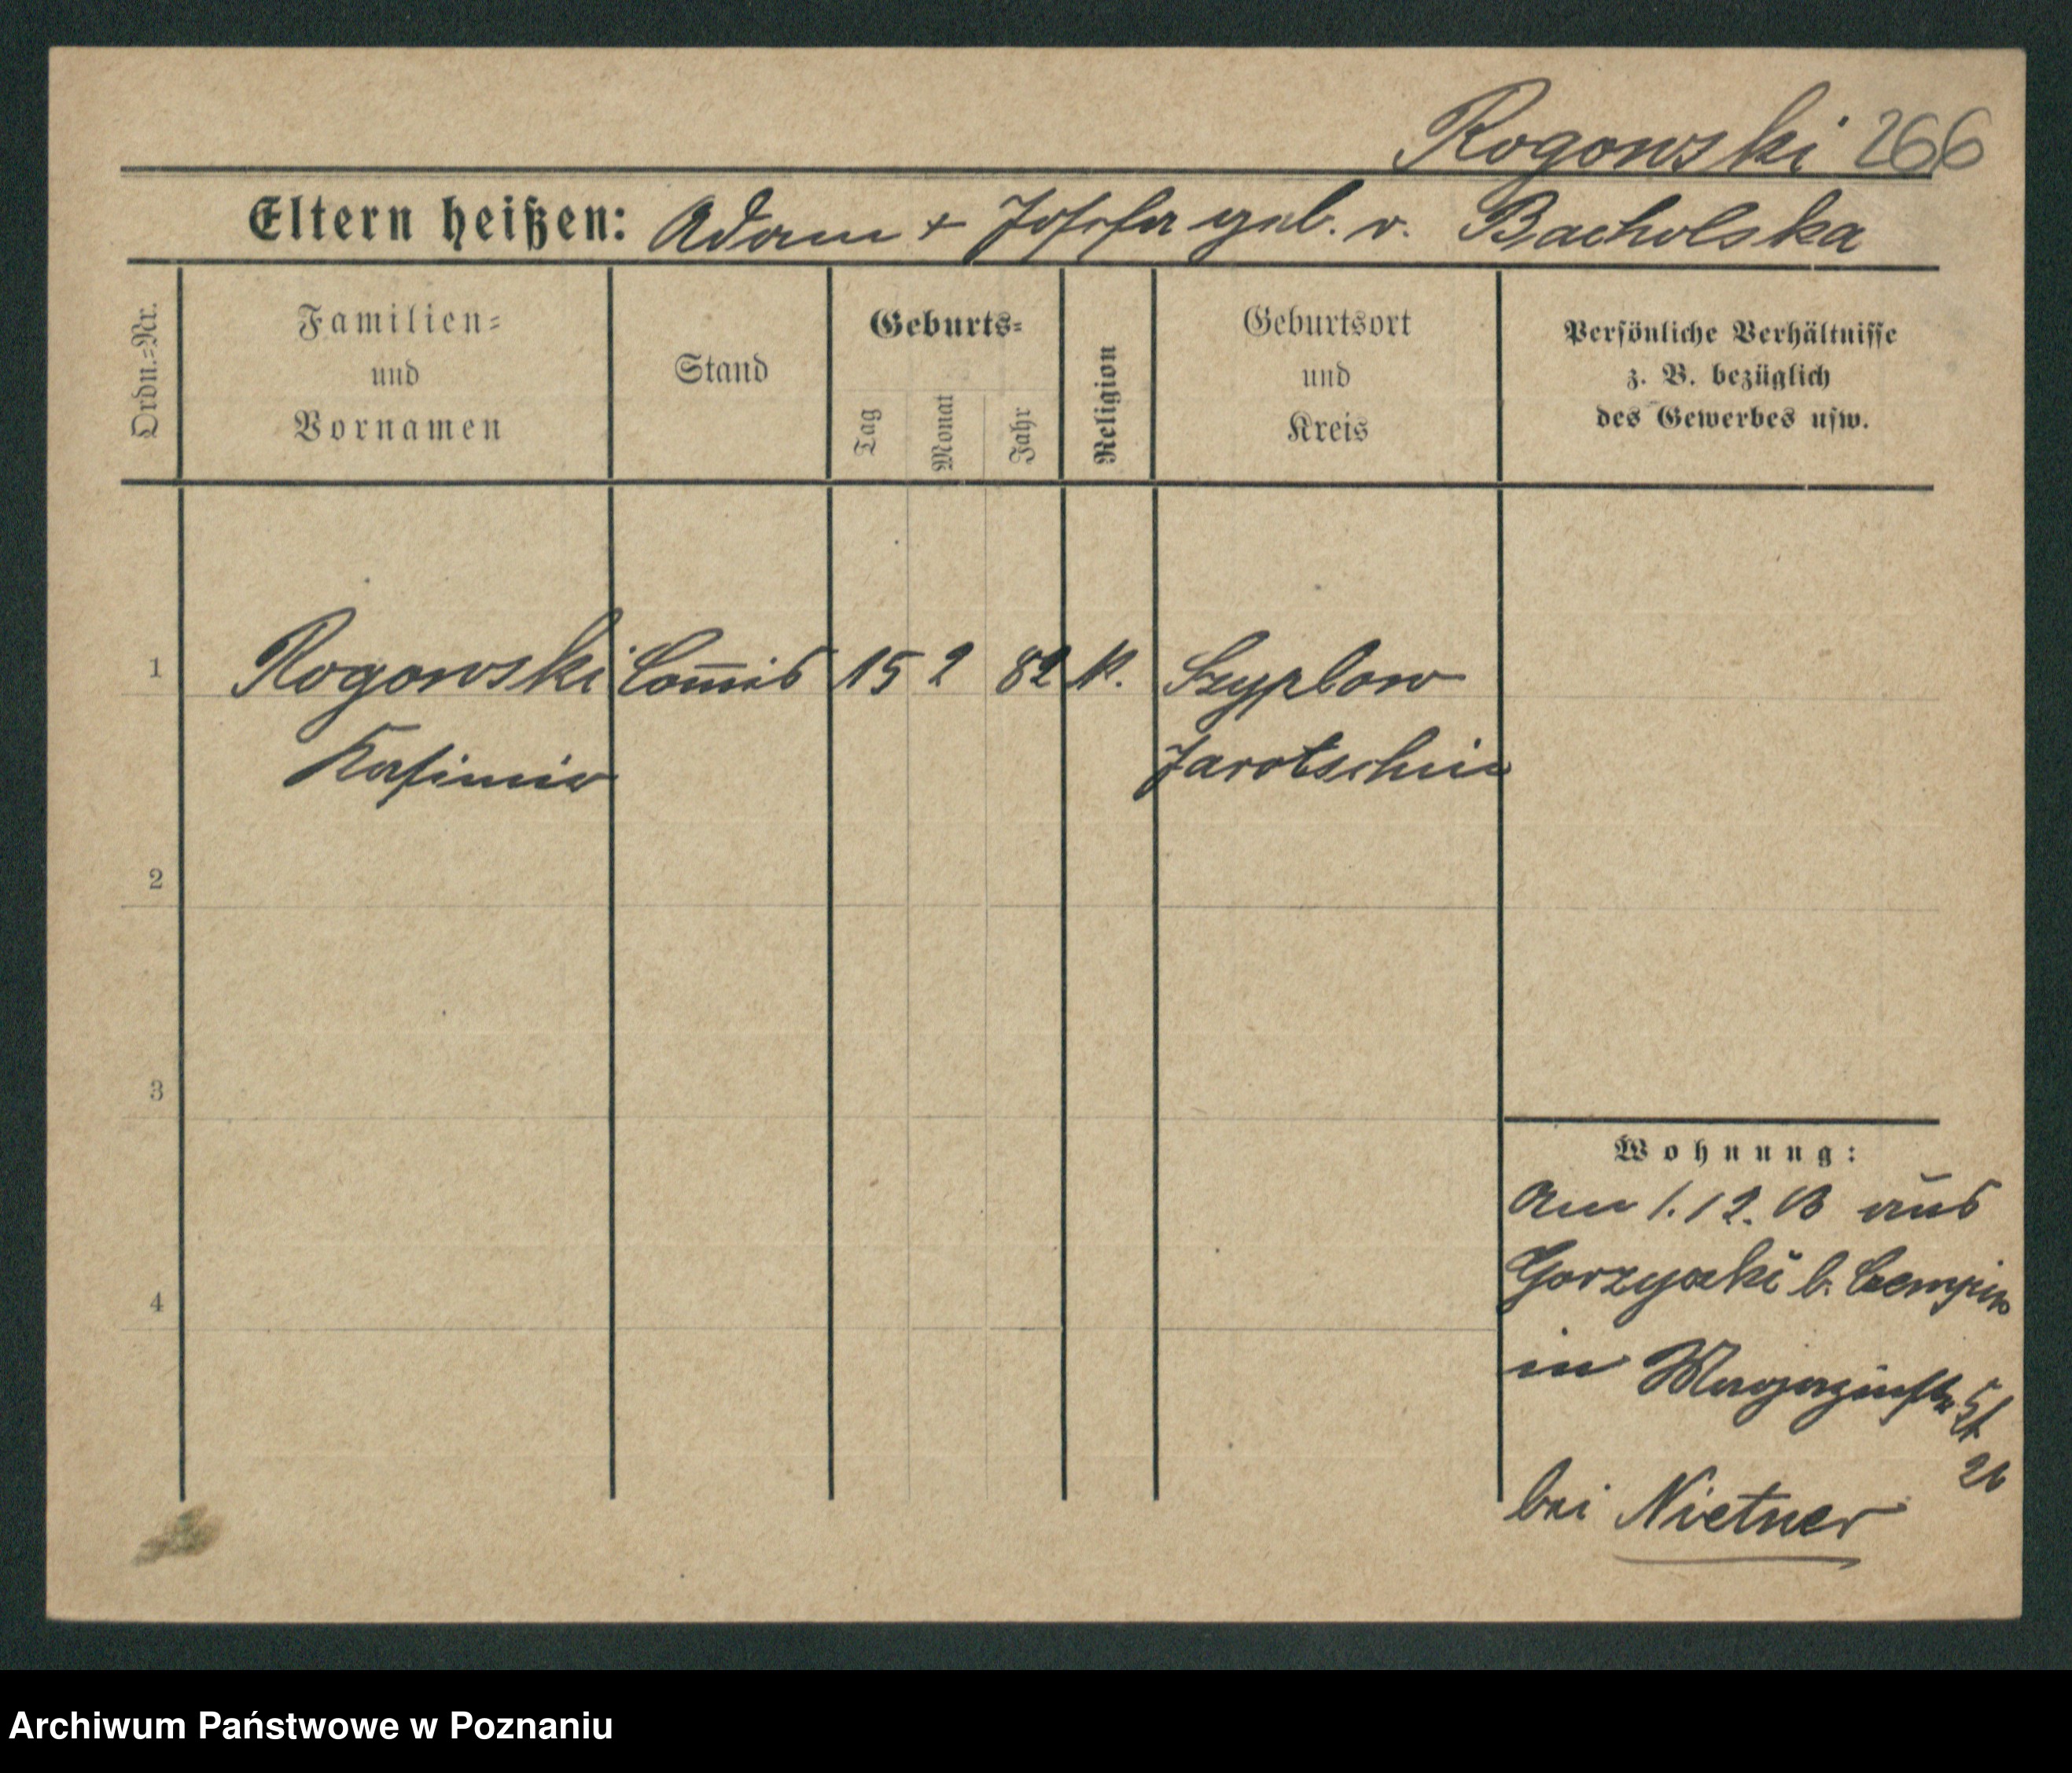 Rogowski 266
Eltern heißen: Adam + Josefa geb. v. Bacholska
Ordn.=Nr.
Familien=
und
Vornamen
Stand
Geburts=
Tag
Monat
Jahr
Religion
Geburtsort
und
Kreis
Persönliche Verhältnisse
z. B. bezüglich
des Gewerbes usw.
1 Rogowski Com̅is 15 2 82 K. Szyplow
Kasimir Jarotschin
2
3
4
Wohnung:
Am 1.12. 13 aus
b. Czempin
in Magazinstr.
bei Nietner
Archiwum Państwowe w Poznaniu